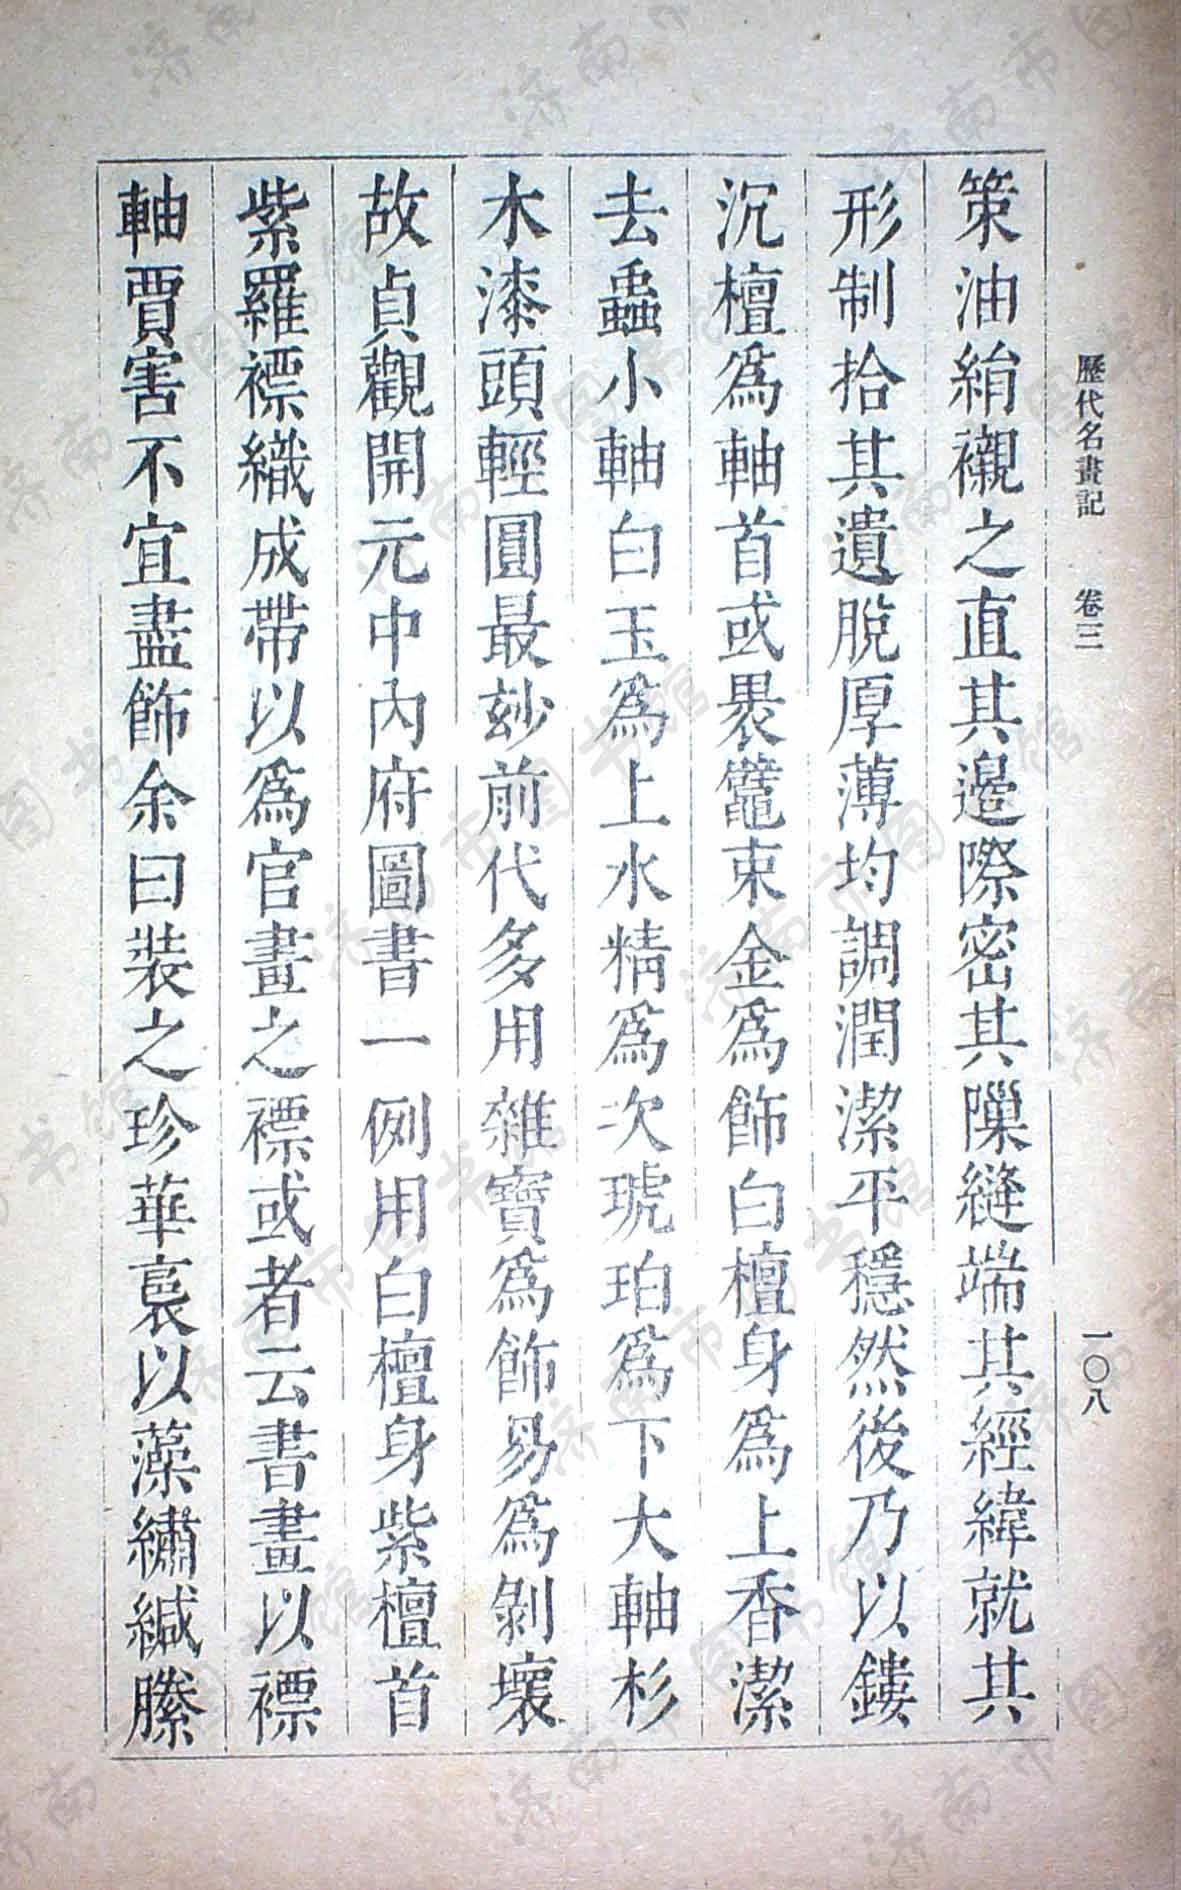 歷代名畫記 卷三 一〇八
策油絹襯之直其邊際密其隟縫端其經緯就其
形制拾其遺脫厚薄均調潤潔平穩然後乃以鏤
沉檀爲軸首或褁鼊束金爲飾白檀身爲上香潔
去蟲小軸白玉爲上水精爲次琥珀爲下大軸杉
木漆頭輕圓最玅前代多用雜寶爲飾易爲剝壞
故貞觀開元中內府圖書一例用白檀身紫檀首
紫羅褾織成帶以爲官畫之褾或者云書畫以褾
軸賈害不宜盡飾余曰裝之珍華裛以藻繡緘縢
济南市图书馆